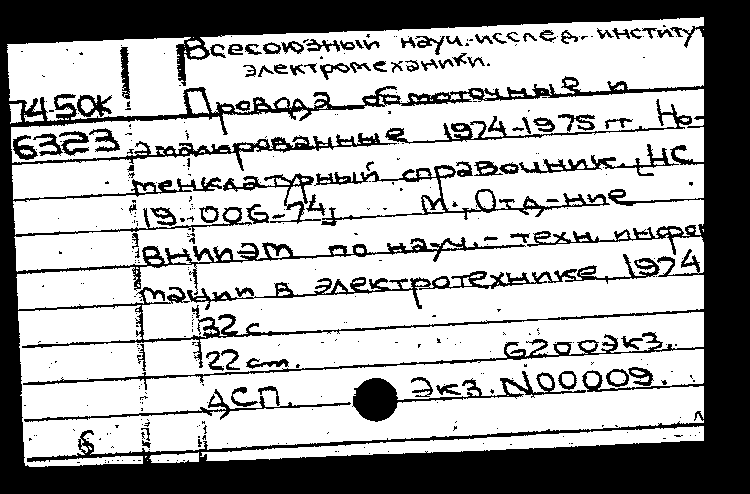 Всесоюзный науч.-исслед. институт
электромеханики.
74-50К Провода обмоточные и
6323 эмалированные 1974-1975 гг. Но-
менклатурный справочник. [НС
19.-006-74]. М., Отд-ние
ВНИИЭМ по науч.-техн. инфор
мации в электротехнике, 1974
32 с.
22 см. 6200экз.
ДСП. Экз. N00009.
б